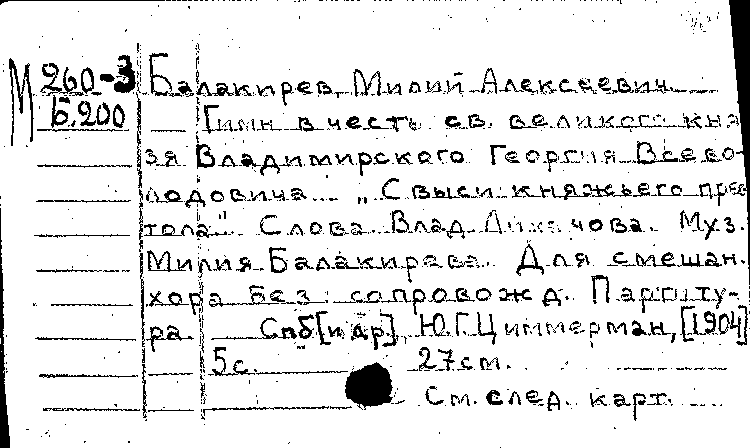 М 260-3 Балакирев, Милий Алексеевич
Б.200 Гимн в честь св. великого кня
зя Владимирского Георгия Всево-
лодовича „С выси княжьего прес
тола" Слова Влад. Лихачова. Муз.
Милия Балакирева. Для смешан.
хора без сопровожд. Партиту-
ра. Спб [и др.], Ю.Г. Циммерман, [1904]
5 с. 27 см.
См. след. карт.